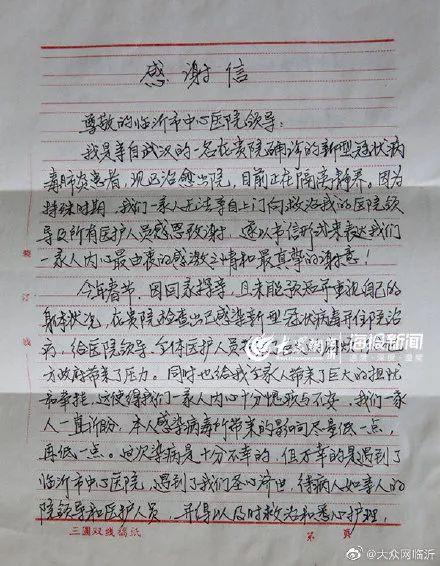 感谢信
尊敬的临沂市中心医院领导:
我是来自武汉的一名在贵院确诊的新型冠状病
毒肺炎患者,现已治愈出院,目前正在隔离静养。因为
特殊时期,我们一家人无法亲自上门向救治我的医院领
导及所有医护人员感恩致谢,遂以书信形式来表达我们
一家人内心最由衷的感激之情和最真挚的谢意!
今年春节,因回家探亲,且未能预知和重视自己的
身体状况,在贵院检查出已感染新型冠状病毒并住院治
病,给医院领导、全体医护人员
方政府带来了压力。同时也给我全家人带来了巨大的担忧
和牵挂,这使得我们一家人内心十分愧歉与不安,我们一家
人一直祈盼,本人感染病毒所带来的影响尽量低一点,
再低一点。这次染病是十分不幸的,但万幸的是遇到了
临沂市中心医院,遇到了我们圣心济世,待病人如亲人的
院领导和医护人员,并得以及时救治和悉心护理,
装订线
三圆双线稿纸
第 页
大众网 海报新闻
速度·深度·温度
@大众网临沂